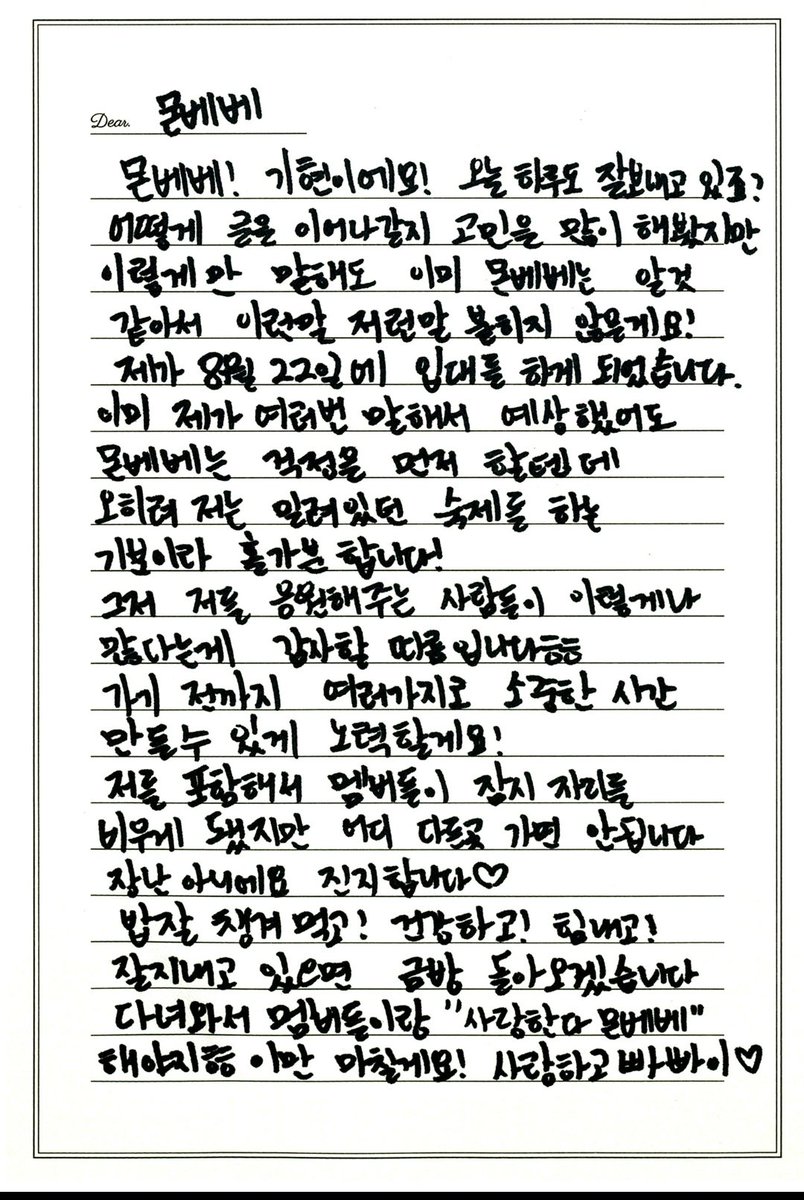 Dear. 몬베베
몬베베! 기현이에요! 오늘 하루도 잘보내고 있죠?
어떻게 글을 이어나갈지 고민을 많이 해봤지만
이렇게만 말해도 이미 몬베베는 알것
같아서 이런말 저런말 붙히지 않을게요!
제가 8월 22일에 입대를 하게 되었습니다.
이미 제가 여러번 말해서 예상했어도
몬베베는 걱정을 먼저 할텐데
오히려 저는 밀려있던 숙제를 하는
기분이라 홀가분 합니다!
그저 저를 응원해주는 사람들이 이렇게나
많다는게 감사할 따름입니다ㅎㅎ
가기 전까지 여러가지로 소중한 시간
만들수 있게 노력할게요!
저를 포함해서 멤버들이 잠시 자리를
비우게 됐지만 어디 다른곳 가면 안됩니다
장난 아니에요 진지합니다♡
밥잘 챙겨 먹고! 건강하고! 힘내고!
잘지내고 있으면 금방 돌아오겠습니다
다녀와서 멤버들이랑 "사랑한다 몬베베"
해야지ㅎㅎ 이만 마칠게요! 사랑하고 빠빠이♡